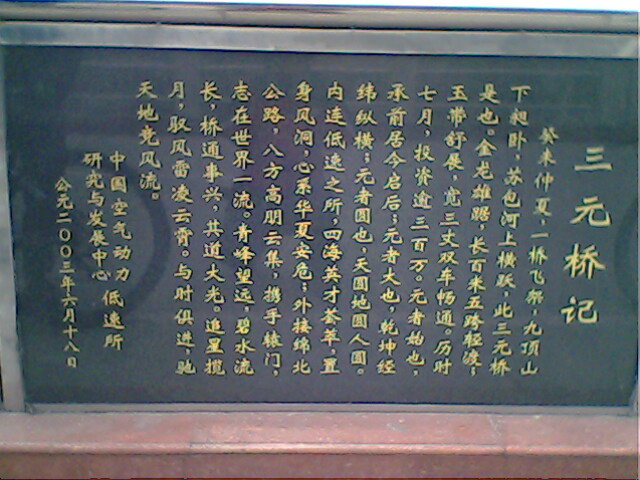 三元桥记
癸未仲夏，一桥飞架，九顶山
下昶卧，苏包河上横跃，此三元桥
是也。金龙雄踞，长百米五跨轻渡；
玉带舒展，宽三丈双车畅通。历时
七月，投资逾三百万。元者始也，
承前居今启后；元者大也，乾坤经
纬纵横；元者圆也，天圆地圆人圆。
内连低速之所，四海英才荟萃，置
身风洞，心系华夏安危；外接绵北
公路，八方高朋云集，携手辕门，
志在世界一流。青峰望远，碧水流
长，桥通事兴，其道大光。追星揽
月，驭风雷凌云霄。与时俱进，驰
天地竞风流。
中国空气动力 低速所
研究与发展中心
公元二00三年六月十八日